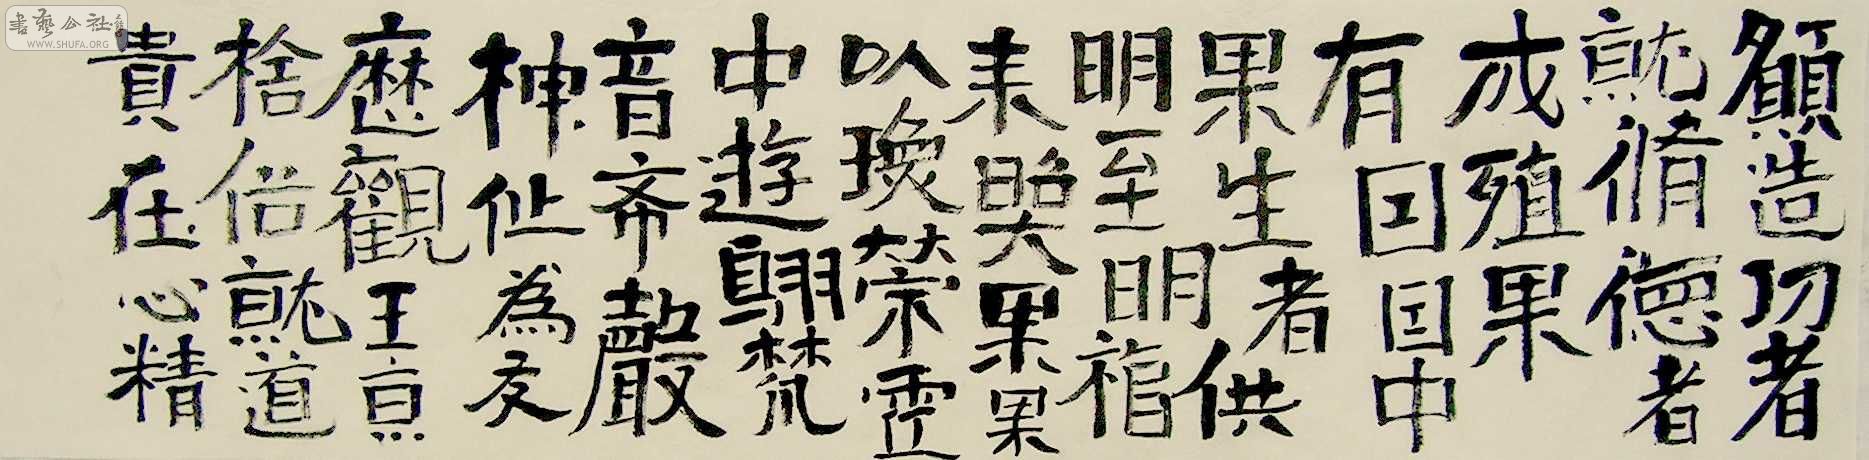 顧造功者
就脩德者
成殖果
有国国中
果生者供
明至明福
来照果果
以瓊荣霊
中遊翱梵
音斎嚴
神仙為友
歴觀王京
捨俗就道
貴在心精
書藝公社
WWW.SHUFA.ORG